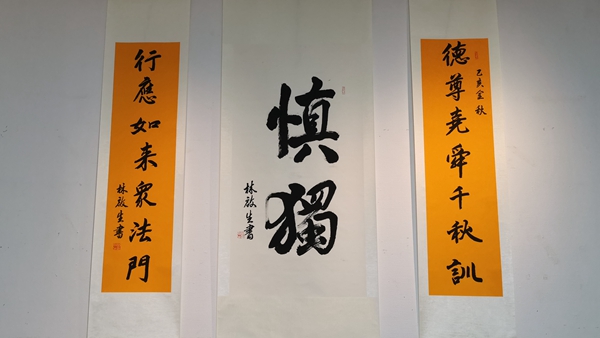 德尊堯舜千秋訓
己亥金秋
慎獨
林啟生書
行應如来眾法門
林啟生書